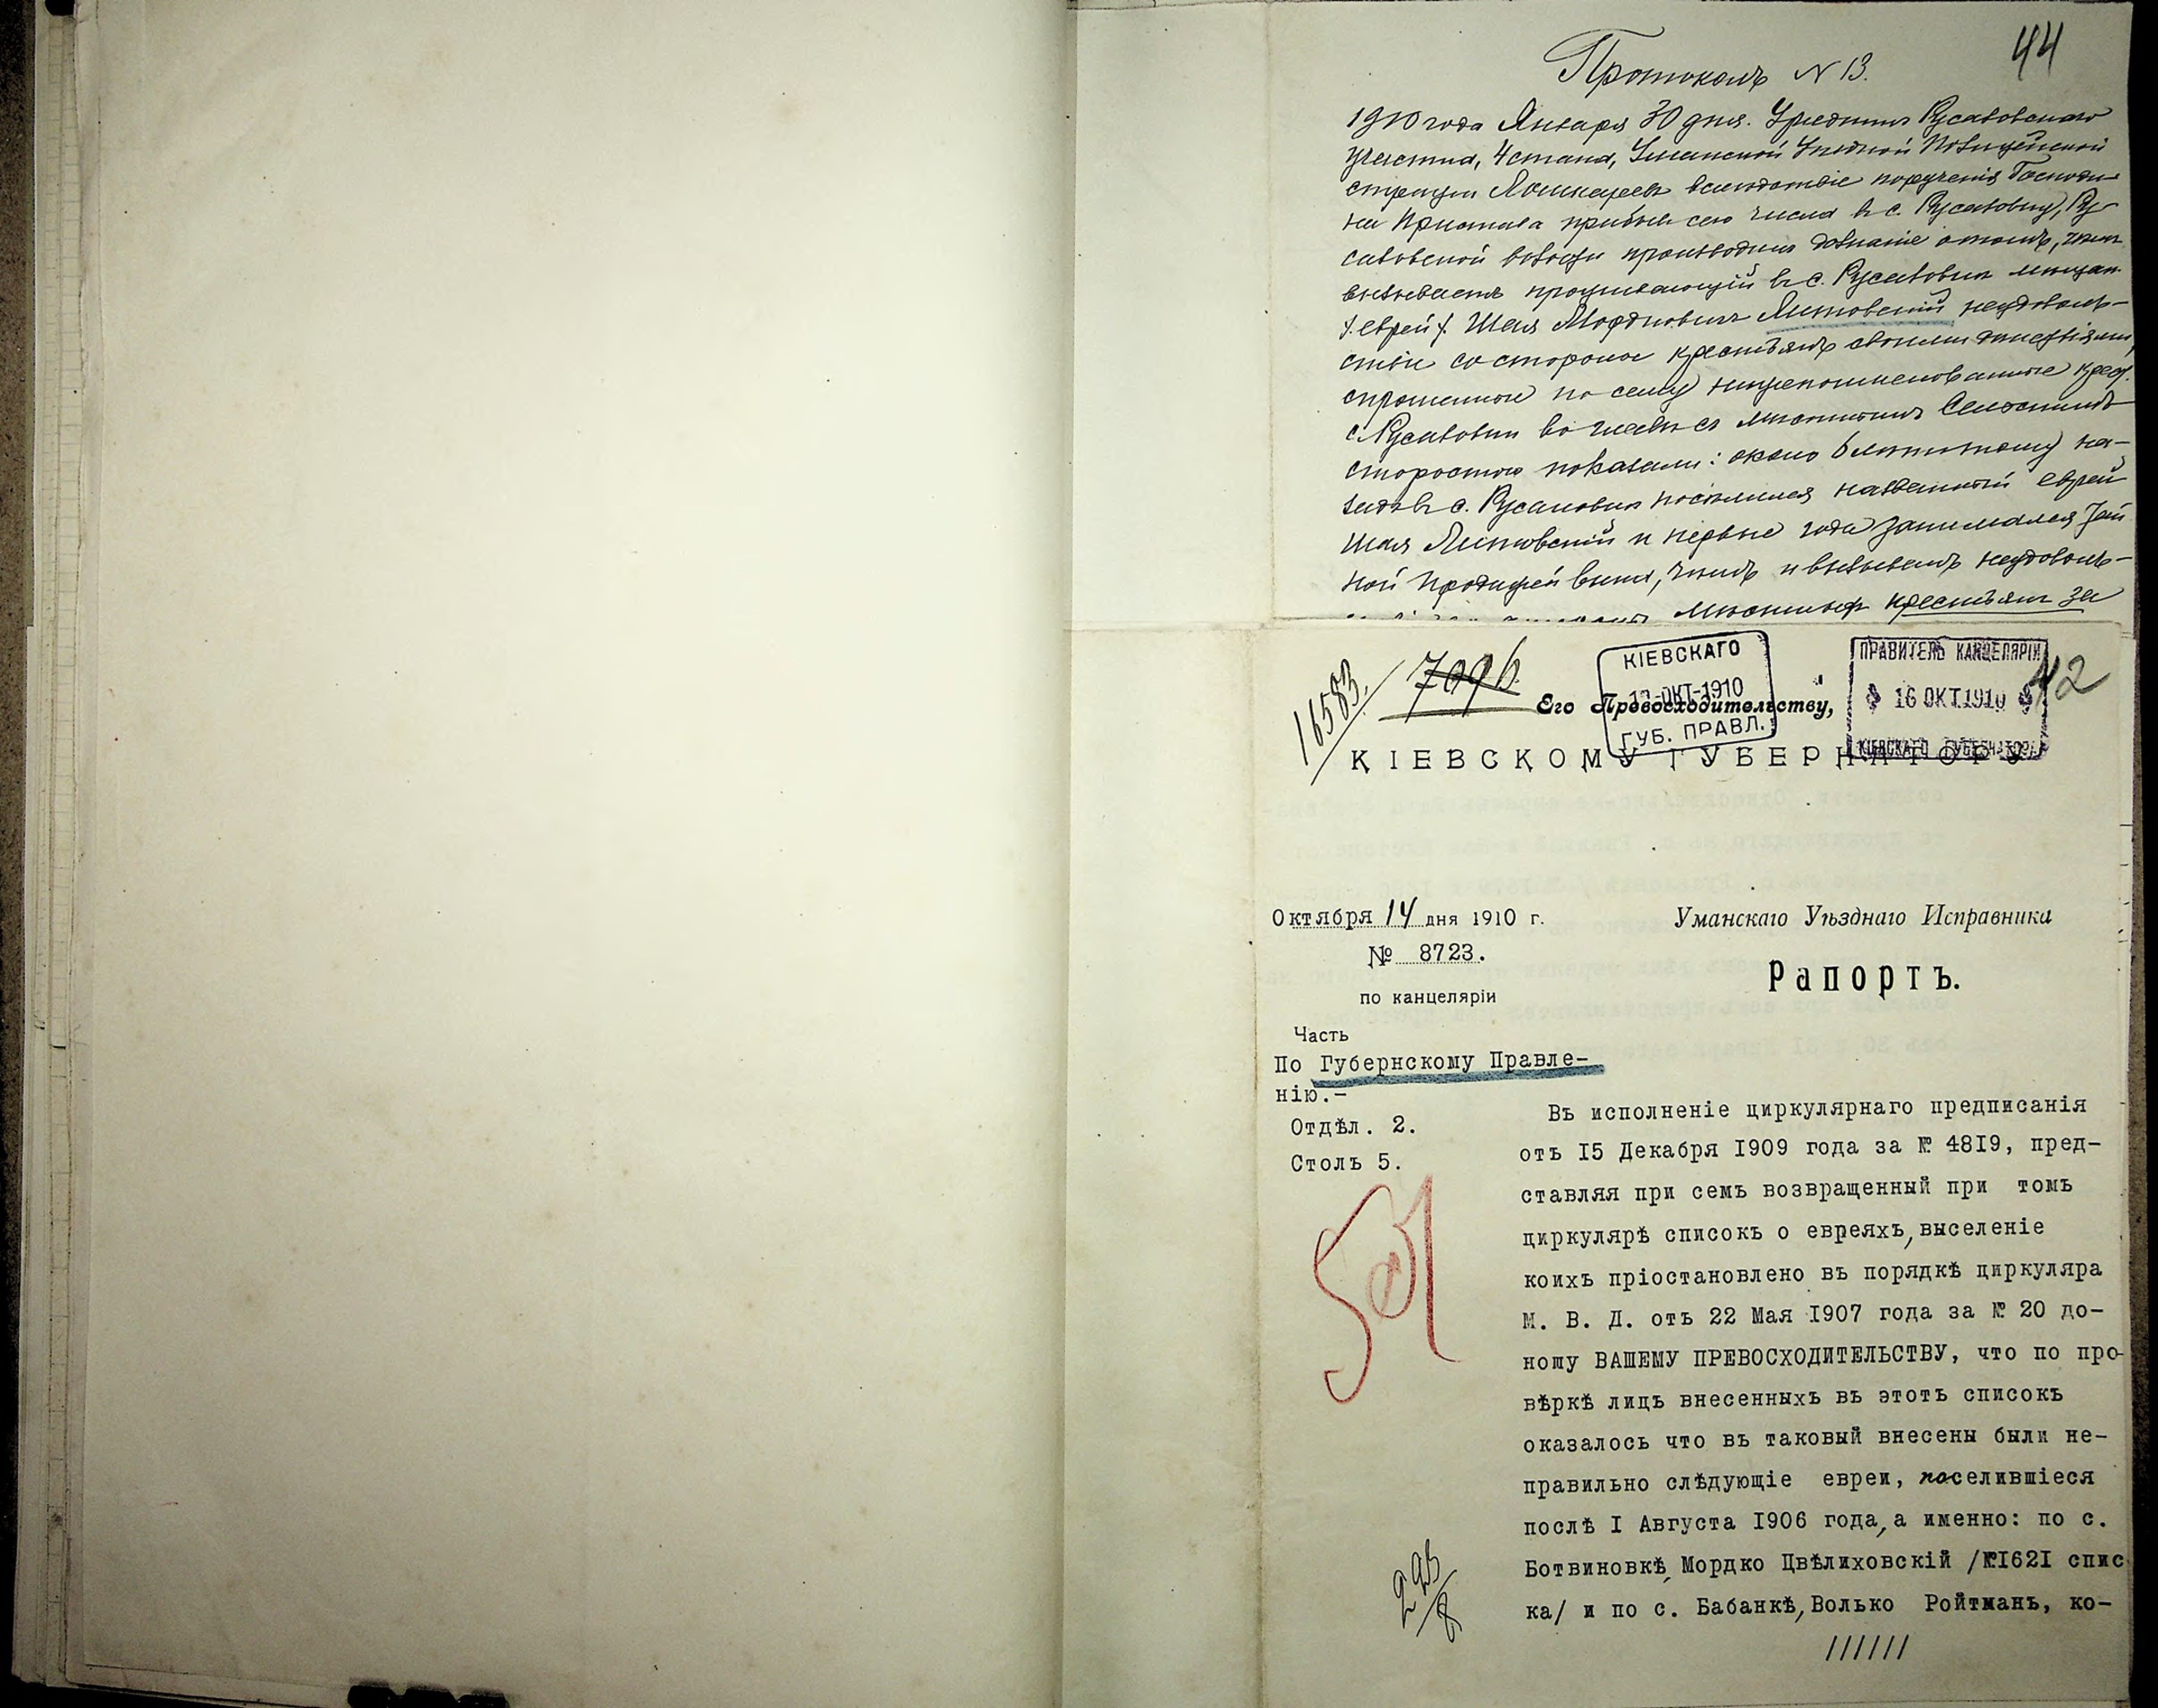 44
Протоколъ N 13.
1910 года Января 30 дня. Урядникъ Русаловскаго
участка, 4 стана, Уманской Уѣздной Полицейской
стражи вслѣдствіе порученія Господи-
на Пристава прибывъ сего числа въ с. Русаловку, Ру-
саловской волости производилъ дознаніе о томъ, чѣмъ
вызываетъ проживающій въ с. Русаловкѣ мѣщан.
/. еврей /. Шая Мордковичъ Литовскій неудоволь-
ствіе со стороны крестьянъ своими дѣйствіями,
спрошенные по сему нижепоименованные крест.
с. Русаловки во главѣ съ мѣстнымъ Сельскимъ
старостою показали: около 6 лѣтъ тому на-
задъ въ с. Русаловкѣ поселился названный еврей
Шая Литовскій и первые года занимался тай
ной продажей вина, чѣмъ и вызывалъ неудоволь-
мѣстныхъ крестьянъ за
16583.
7096
КІЕВСКАГО
ОКТ-1910
ГУБ. ПРАВЛ.
ПРАВИТЕЛЬ КАНЦЕЛЯРІИ
16 ОКТ.1910
КІЕВСКАГО ГУБЕРНАТОРА
42
Его Превосходительству,
КІЕВСКОМУ ГУБЕРНАТОРУ
Октября 14 дня 1910 г.
№ 8723.
по канцеляріи
Уманскаго Уѣзднаго Исправника
Рапортъ.
Часть
По Губернскому Правле-
нію.-
Отдѣл. 2.
Столъ 5.
Въ исполненіе циркулярнаго предписанія
отъ I5 Декабря I909 года за № 48I9, пред-
ставляя при семъ возвращенный при томъ
циркулярѣ списокъ о евреяхъ, выселеніе
коихъ пріостановлено въ порядкѣ циркуляра
М. В. Д. отъ 22 Мая I907 года за № 20 до-
ношу ВАШЕМУ ПРЕВОСХОДИТЕЛЬСТВУ, что по про-
вѣркѣ лицъ внесенныхъ въ этотъ списокъ
оказалось что въ таковый внесены были не-
правильно слѣдующіе евреи, поселившіеся
послѣ I Августа I906 года, а именно: по с.
Ботвиновкѣ, Мордко Цвѣлиховскій /№I62I спис
ка/ и по с. Бабанкѣ, Волько Ройтманъ, ко-
//////